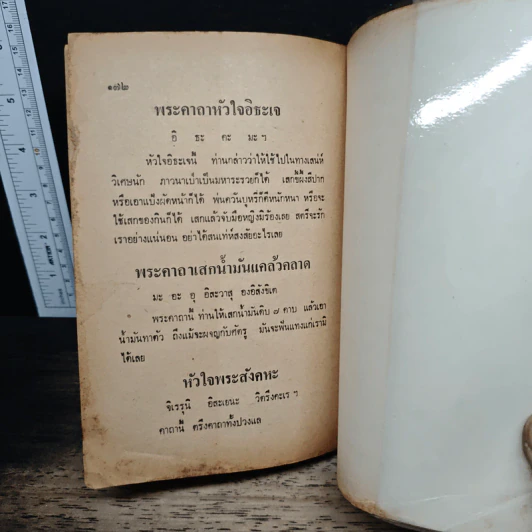 ๑๗๒
พระคาถาหัวใจอิธะเจ
อิ ธะ คะ มะ ฯ
หัวใจอิธะเจนี้ ท่านกล่าวว่าให้ใช้ไปในทางเสน่ห์
วิเศษนัก ภาวนาเป่าเป็นมหาระรวยก็ได้ เสกขี้ผึ้งสีปาก
หรือเอาแป้งผัดหน้าก็ได้ พ่นควันบุหรี่ก็ดีหนักหนา หรือจะ
ใช้เสกของกินก็ได้ เสกแล้วจับมือหญิงมิร้องเลย สตรีจะรัก
เราอย่างแน่นอน อย่าได้สนเท่ห์สงสัยอะไรเลย
พระคาถาเสกน้ำมันแคล้วคลาด
มะ อะ อุ อิสะวาสุ องอิสังขิเต
พระคาถานี้ ท่านให้เสกน้ำมันดิบ ๗ คาบ แล้วเอา
น้ำมันทาตัว ถึงแม้จะผจญกับศัตรู มันจะฟันแทงแก่เรามิ
ได้เลย
หัวใจพระสังคหะ
จิเจรุนิ อิสะเยนะ วิตรึงคะเร ฯ
คาถานี้ ตรึงคาถาทั้งปวงแล